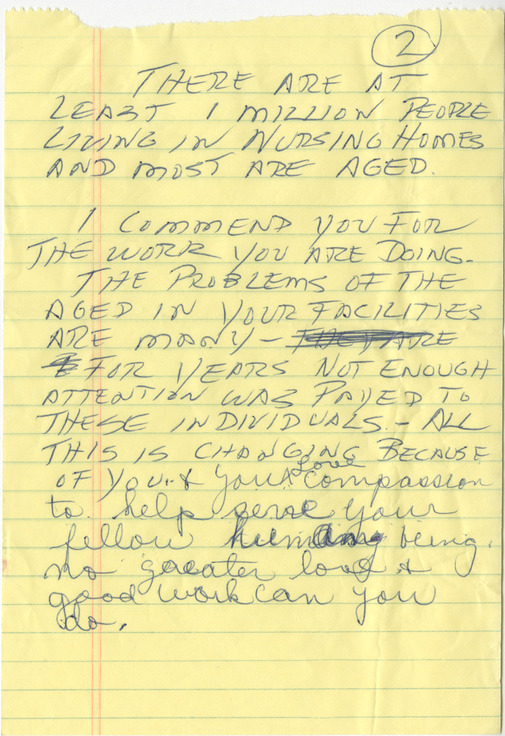 2
THERE ARE AT
LEAST 1 MILLION PEOPLE
LIVING IN NURSING HOMES
AND MOST ARE AGED.
I COMMEND YOU FOR
THE WORK YOU ARE DOING.
THE PROBLEMS OF THE
AGED IN YOUR FACILITIES
ARE MANY - THEY ARE
FOR YEARS NOT ENOUGH
ATTENTION WAS PAYED TO
THESE INDIVIDUALS. - ALL
THIS IS CHANGING BECAUSE
Love
OF YOU. & your compassion
to help serve your
fellow human being.
no greater love &
good work can you
do.